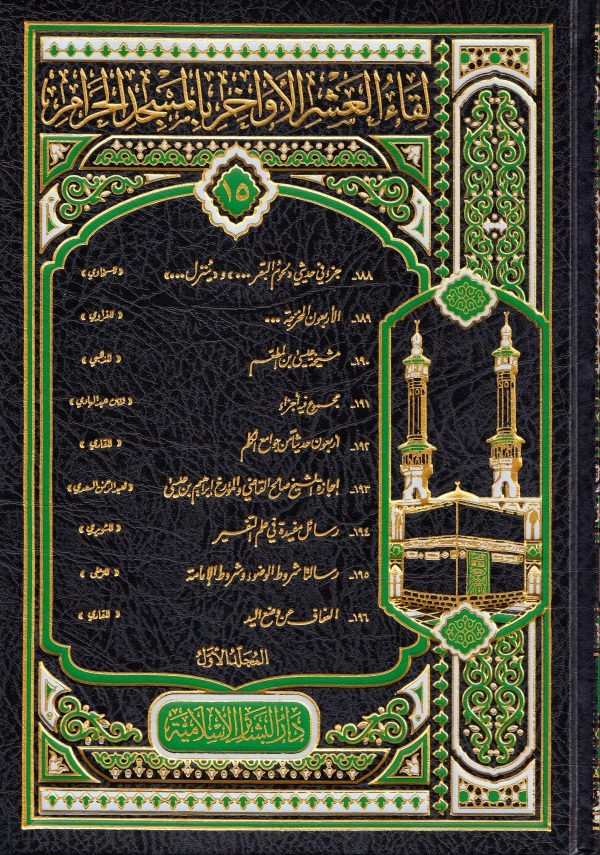 لقاء العشر الأواخر بالمسجد الحرام
١٥
١٨٨ـ جزء في حديثي «لحوم البقر ...» و«يُنزل ...» «للسخاوي»
١٨٩ـ الأربعون ... «للفزاري»
١٩٠ـ مشيخة عيسى ابن المطعم «للذهبي»
١٩١ـ مجموع فيه أجزاء «لابن عبد الهادي»
١٩٢ـ أربعون حديثاً من جوامع الكلم «للقاري»
١٩٣ـ إجازة الشيخ صالح القاضي والمؤرخ إبراهيم بن عيسى «لعبد الرحمن السعدي»
١٩٤ـ رسائل مفيدة في علم التفسير
١٩٥ـ رسالتا شروط الوضوء وشروط الإمامة «للرملي»
١٩٦ـ العفاف عن وضع اليد «للقاري»
المجلد الأول
دار البشائر الإسلامية